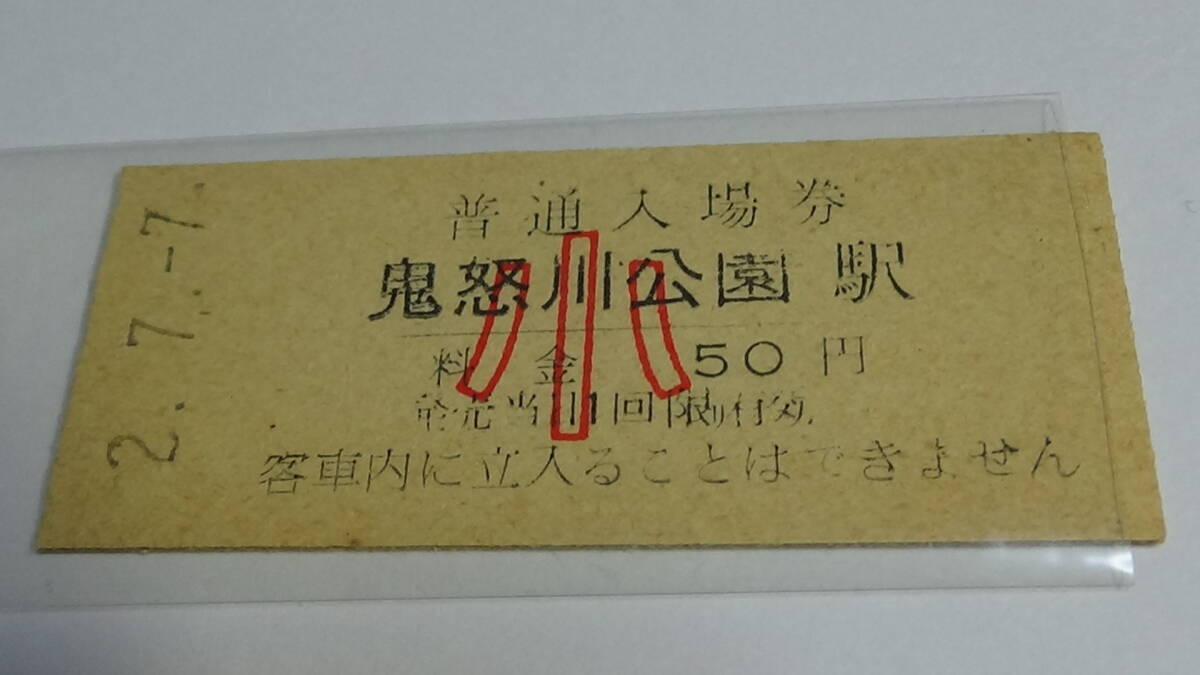 2.-7.-7.
普通入場券
鬼怒川公園駅
小
料金 50円
発売当日1回限り有効
客車内に立入ることはできません